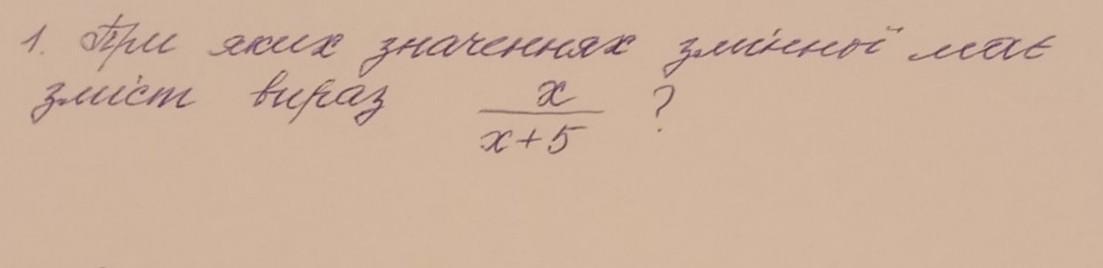 1. При яких значеннях змінної має
зміст вираз x/(x+5) ?